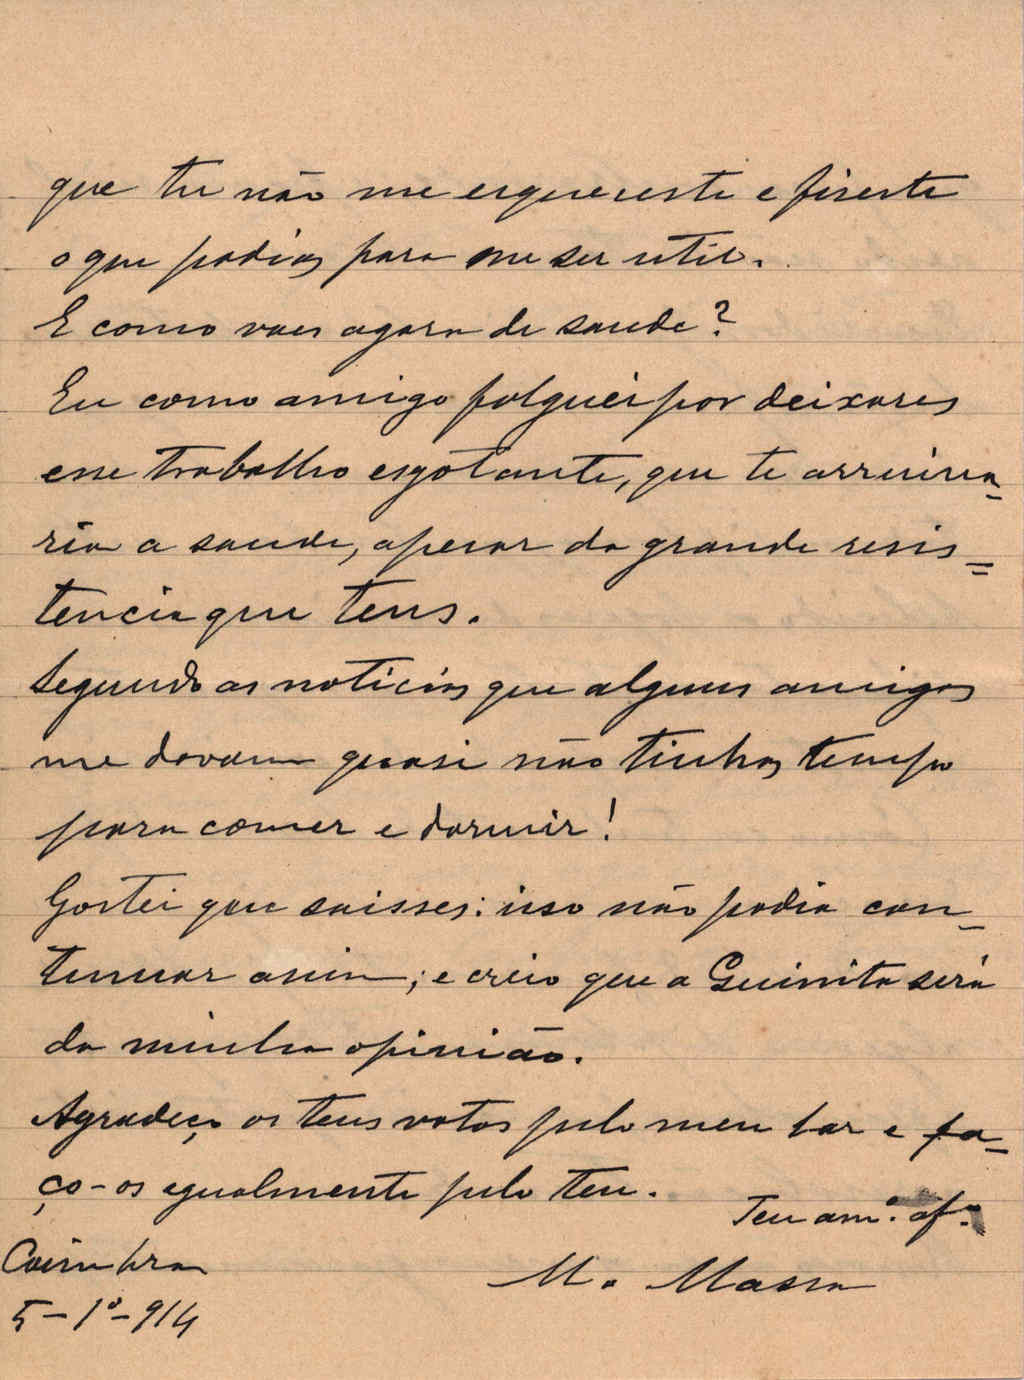 que tu não me esqueceste e fizeste
o que podias para me ser util.
E como vaes agora de saude?
Eu como amigo folguei por deixares
esse trabalho esgotante, que te arruina-
ria a saude, apezar da grande resis=
tencia que tens.
Segundo as noticias que alguns amigos
me davam quasi não tinhas tempo
para comer e dormir!
Gostei que saisses: isso não podia con-
tinuar assim; e creio que a Guinita será
da minha opinião.
Agradeço os teus votos pelo meu lar e fa-
ço-os egualmente pelo teu.
Teu am.º af.º
M. Massa
Coimbra
5-1º-914